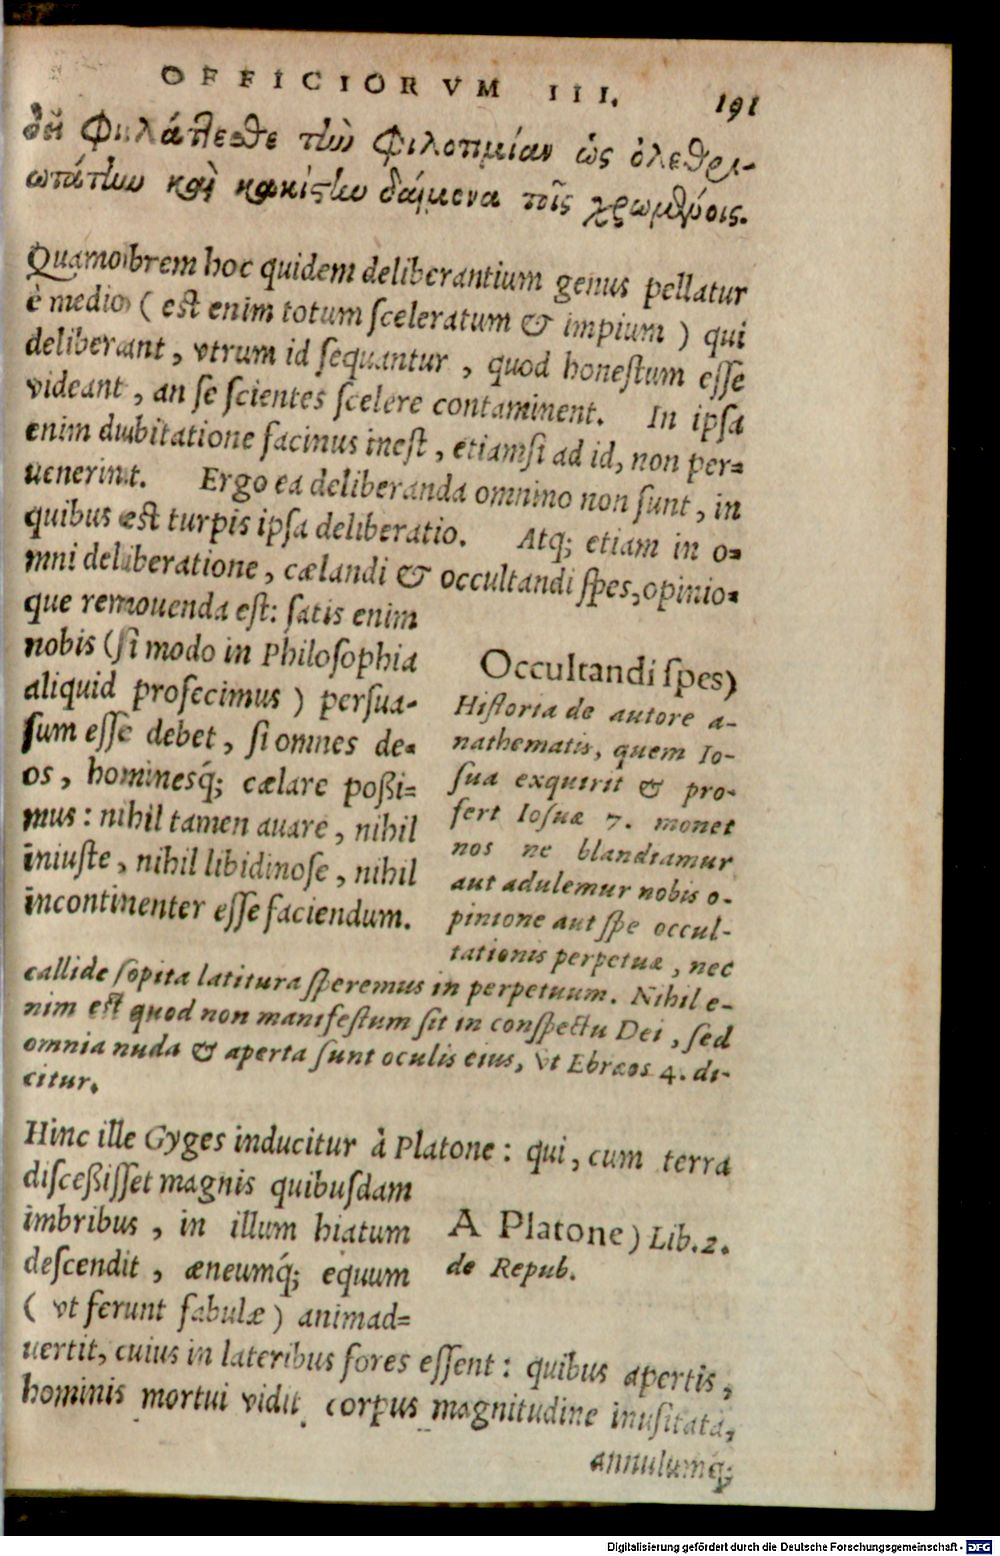 OFFICIORVM III. 191
δεῖ φυλάττεσθε τὴν φιλοτιμίαν ὡς ὀλεθρι-
ωτάτην καὶ κακίστην δαίμονα τοῖς χρωμένοις.
Quamobrem hoc quidem deliberantium genus pellatur
è medio (est enim totum sceleratum & impium) qui
deliberant, vtrum id sequantur, quod honestum esse
videant, an se scientes scelere contaminent. In ipsa
enim dubitatione facinus inest, etiamsi ad id, non per=
uenerint. Ergo ea deliberanda omnino non sunt, in
quibus est turpis ipsa deliberatio. Atq; etiam in o=
mni deliberatione, cælandi & occultandi spes, opinio=
que remouenda est: satis enim
nobis (si modo in Philosophia
aliquid profecimus) persua-
sum esse debet, si omnes de=
os, hominesq́; cælare poßi=
mus: nihil tamen auare, nihil
iniuste, nihil libidinose, nihil
incontinenter esse faciendum.
Occultandi spes)
Historia de autore a-
nathematis, quem Io-
sua exquirit & pro-
fert Iosuæ 7. monet
nos ne blandiamur
aut adulemur nobis o-
pinione aut spe occul-
tationis perpetuæ, nec
callide sopita latitura speremus in perpetuum. Nihil e-
nim est quod non manifestum sit in conspectu Dei, sed
omnia nuda & aperta sunt oculis eius, vt Ebræos 4. di-
citur.
Hinc ille Gyges inducitur à Platone: qui, cum terra
discessißet magnis quibusdam
imbribus, in illum hiatum
descendit, æneumq́; equum
(vt ferunt fabulæ) animad=
A Platone) Lib. 2.
de Repub.
uertit, cuius in lateribus fores essent: quibus apertis,
hominis mortui vidit corpus magnitudine inusitata,
annulumq́;
Digitalisierung gefördert durch die Deutsche Forschungsgemeinschaft - DFG